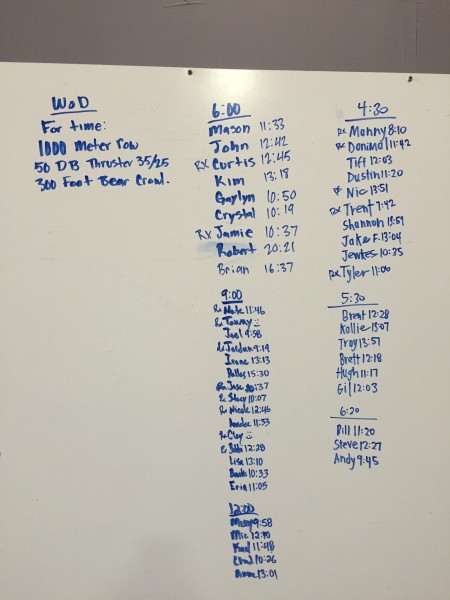 WOD
For time:
1000 Meter row
50 DB Thruster 35/25
300 Foot Bear Crawl.
6:00
Mason 11:33
John 12:42
RX Curtis 12:45
Kim 13:18
Gaylyn 10:50
Crystal 10:19
RX Jamie 10:37
Robert 20:21
Brian 16:37
9:00
Rx Nate 11:46
Rx Tammy
Joel 9:58
Rx Jordan 9:19
Irene 13:13
15:30
Rx Jase
Rx Stacy 10:07
Rx Nicole 12:46
11:33
Rx Clay
Rx Bobbi 12:28
Lisa 13:10
10:33
Erin 11:05
12:00
9:58
Mic
11:48
Chad 10:26
13:01
4:30
Rx Manny 8:10
Rx Danimal 11:42
Tiff 12:03
Dustin 11:20
Nic 13:51
Rx Trent 7:42
Shannon
Jake F. 13:04
Jewkes 10:35
Rx Tyler 11:00
5:30
Brent 12:28
Kollie 13:07
Troy 13:57
Brett 12:18
Hugh 11:17
Gil 12:03
6:20
Bill 11:20
Steve 12:27
Andy 9:45